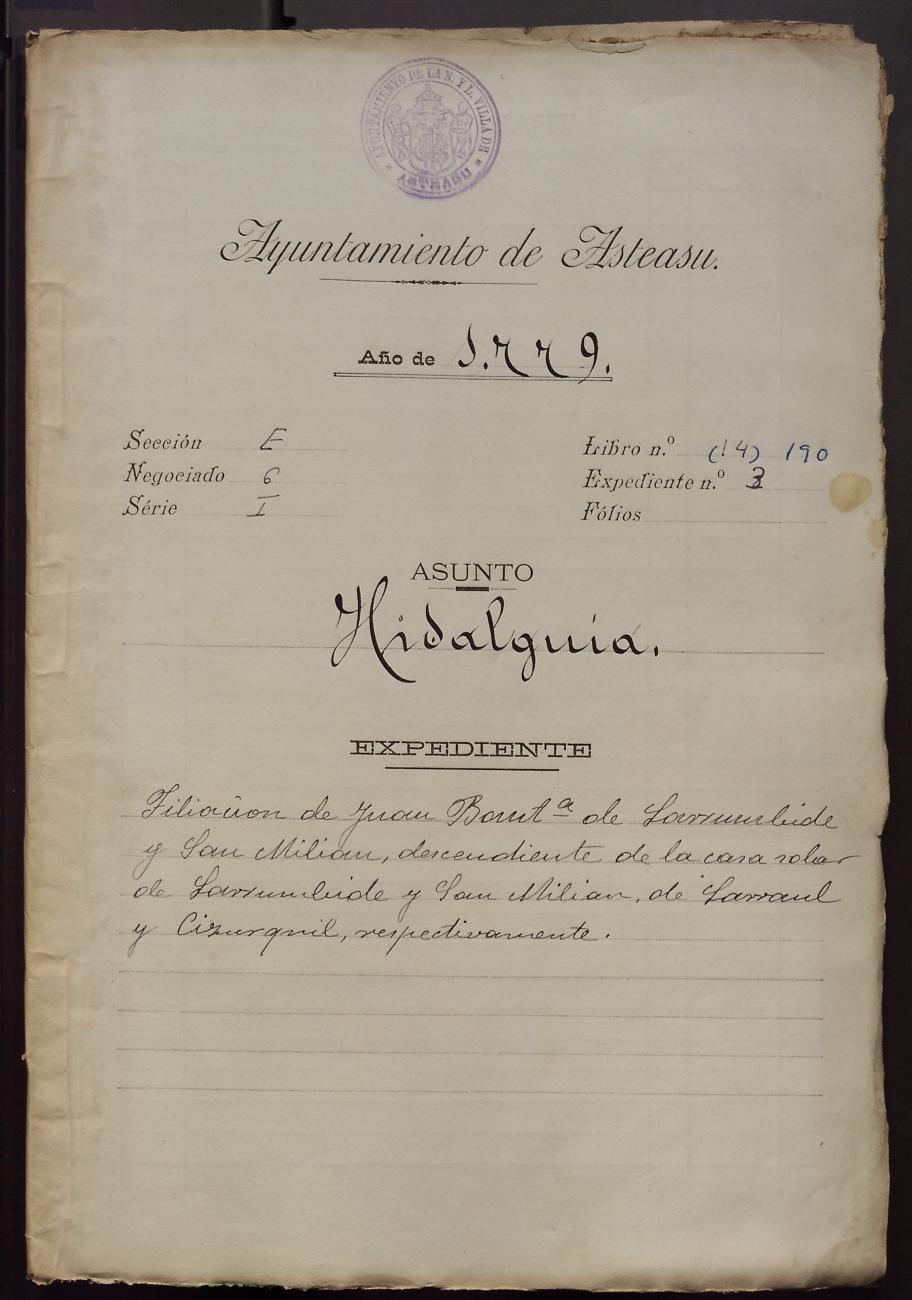 AYUNTAMIENTO DE LA N. Y L. VILLA DE
ASTEASU
Ayuntamiento de Asteasu.
Año de 1.779.
Sección E
Negociado 6
Série I
Libro n.º (14) 190
Expediente n.º 3
Fólios
ASUNTO
Hidalguia.
EXPEDIENTE
Filiación de Juan Baut.ª de Larrumbide
y San Milian, descendiente de la casa solar
de Larrumbide y San Milian, de Larraul
y Cizurquil, respectivamente.